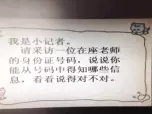 我是小记者。
请采访一位在座老师
的身份证号码，说说你
能从号码中得知哪些信
息，看看说得对不对。